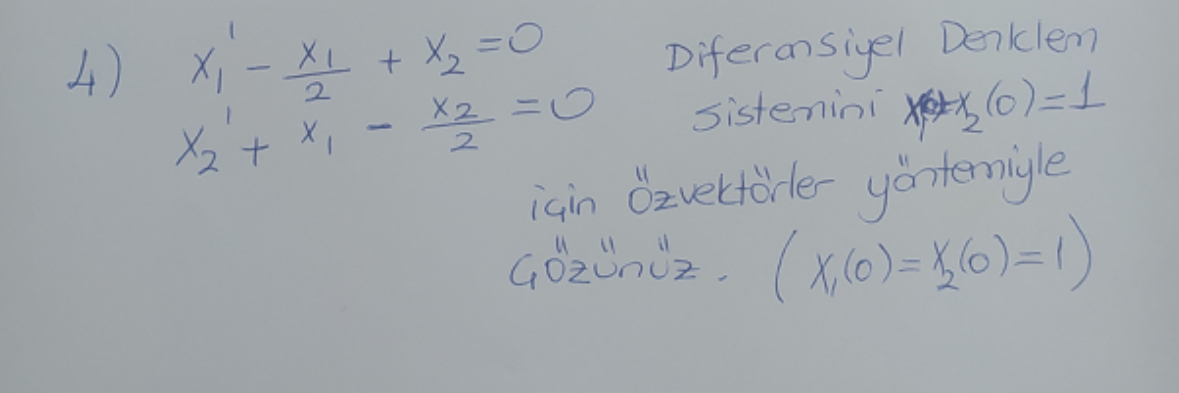 4) x₁' - x₁/2 + x₂ = 0 Diferansiyel Denklem
x₂' + x₁ - x₂/2 = 0 sistemini x₂(0) = 1
için özvektörler yöntemiyle
çözünüz. (x₁(0) = x₂(0) = 1)